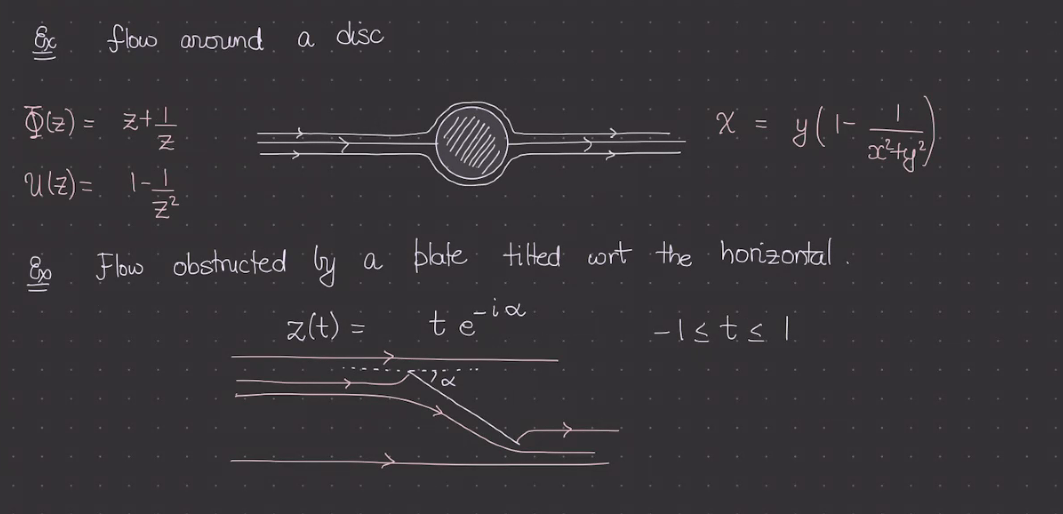 Ex flow around a disc
Φ(z) = z+1/z
χ = y(1- 1/(x²+y²))
U(z) = 1-1/z²
Ex Flow obstructed by a plate tilted wrt the horizontal.
z(t) = t e^{-iα} -1 ≤ t ≤ 1
α